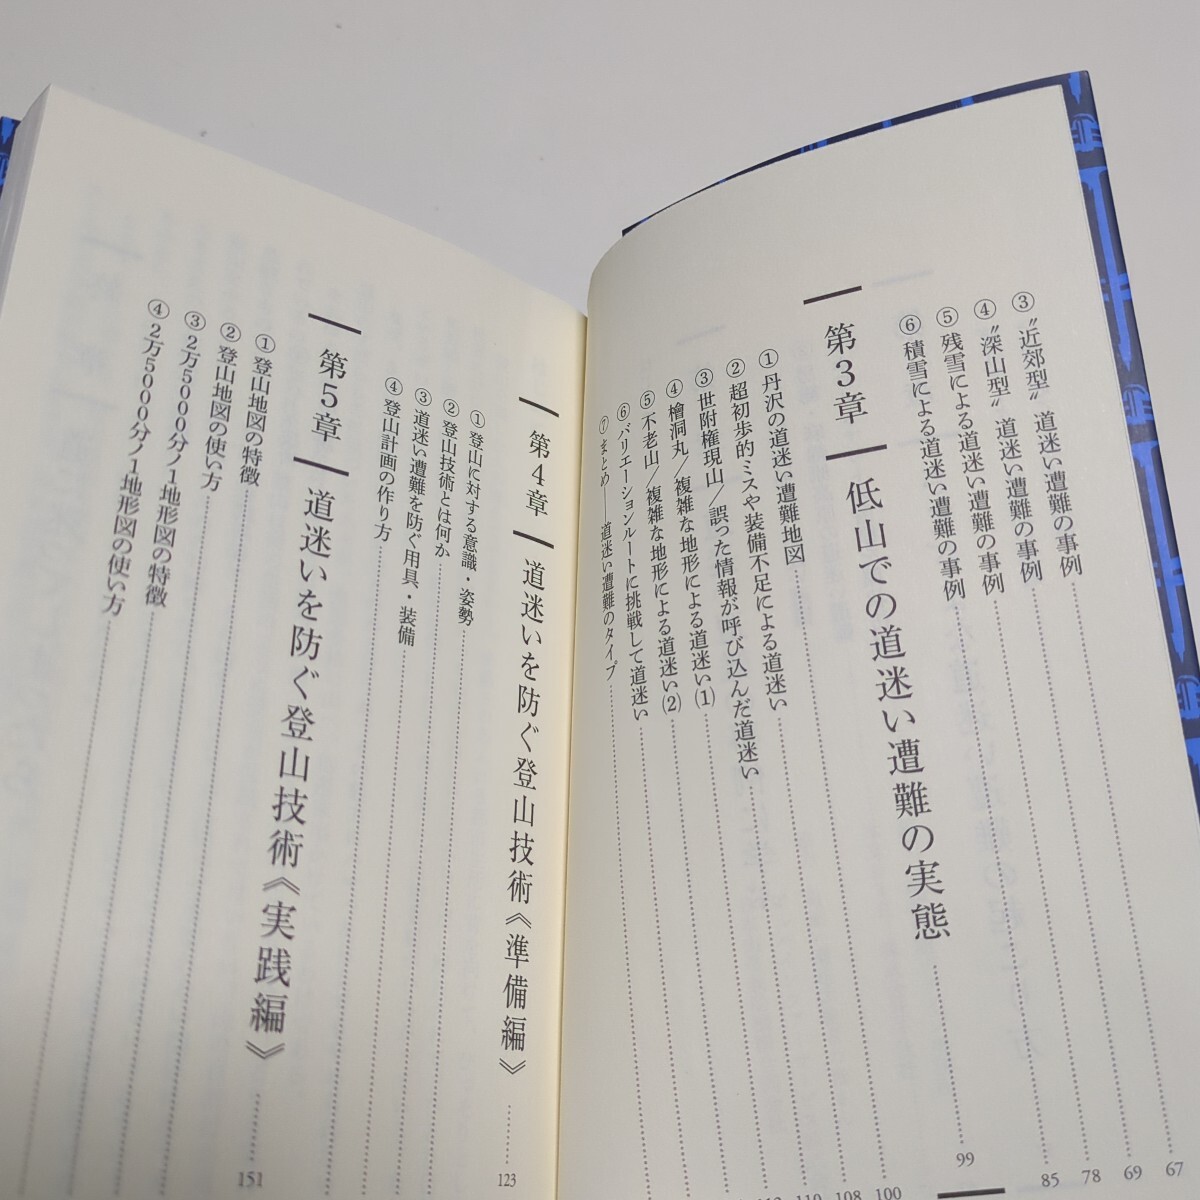 ③ 〝近郊型〟道迷い遭難の事例 67
④ 〝深山型〟道迷い遭難の事例 69
⑤ 残雪による道迷い遭難の事例 78
⑥ 積雪による道迷い遭難の事例 85
第3章 低山での道迷い遭難の実態 99
① 丹沢の道迷い遭難地図 100
② 超初歩的ミスや装備不足による道迷い 108
③ 世附権現山／誤った情報が呼び込んだ道迷い 110
④ 檜洞丸／複雑な地形による道迷い(1)
⑤ 不老山／複雑な地形による道迷い(2)
⑥ バリエーションルートに挑戦して道迷い
⑦ まとめ——道迷い遭難のタイプ
第4章 道迷いを防ぐ登山技術《準備編》 123
① 登山に対する意識・姿勢
② 登山技術とは何か
③ 道迷い遭難を防ぐ用具・装備
④ 登山計画の作り方
第5章 道迷いを防ぐ登山技術《実践編》 151
① 登山地図の特徴
② 登山地図の使い方
③ 2万5000分ノ1地形図の特徴
④ 2万5000分ノ1地形図の使い方